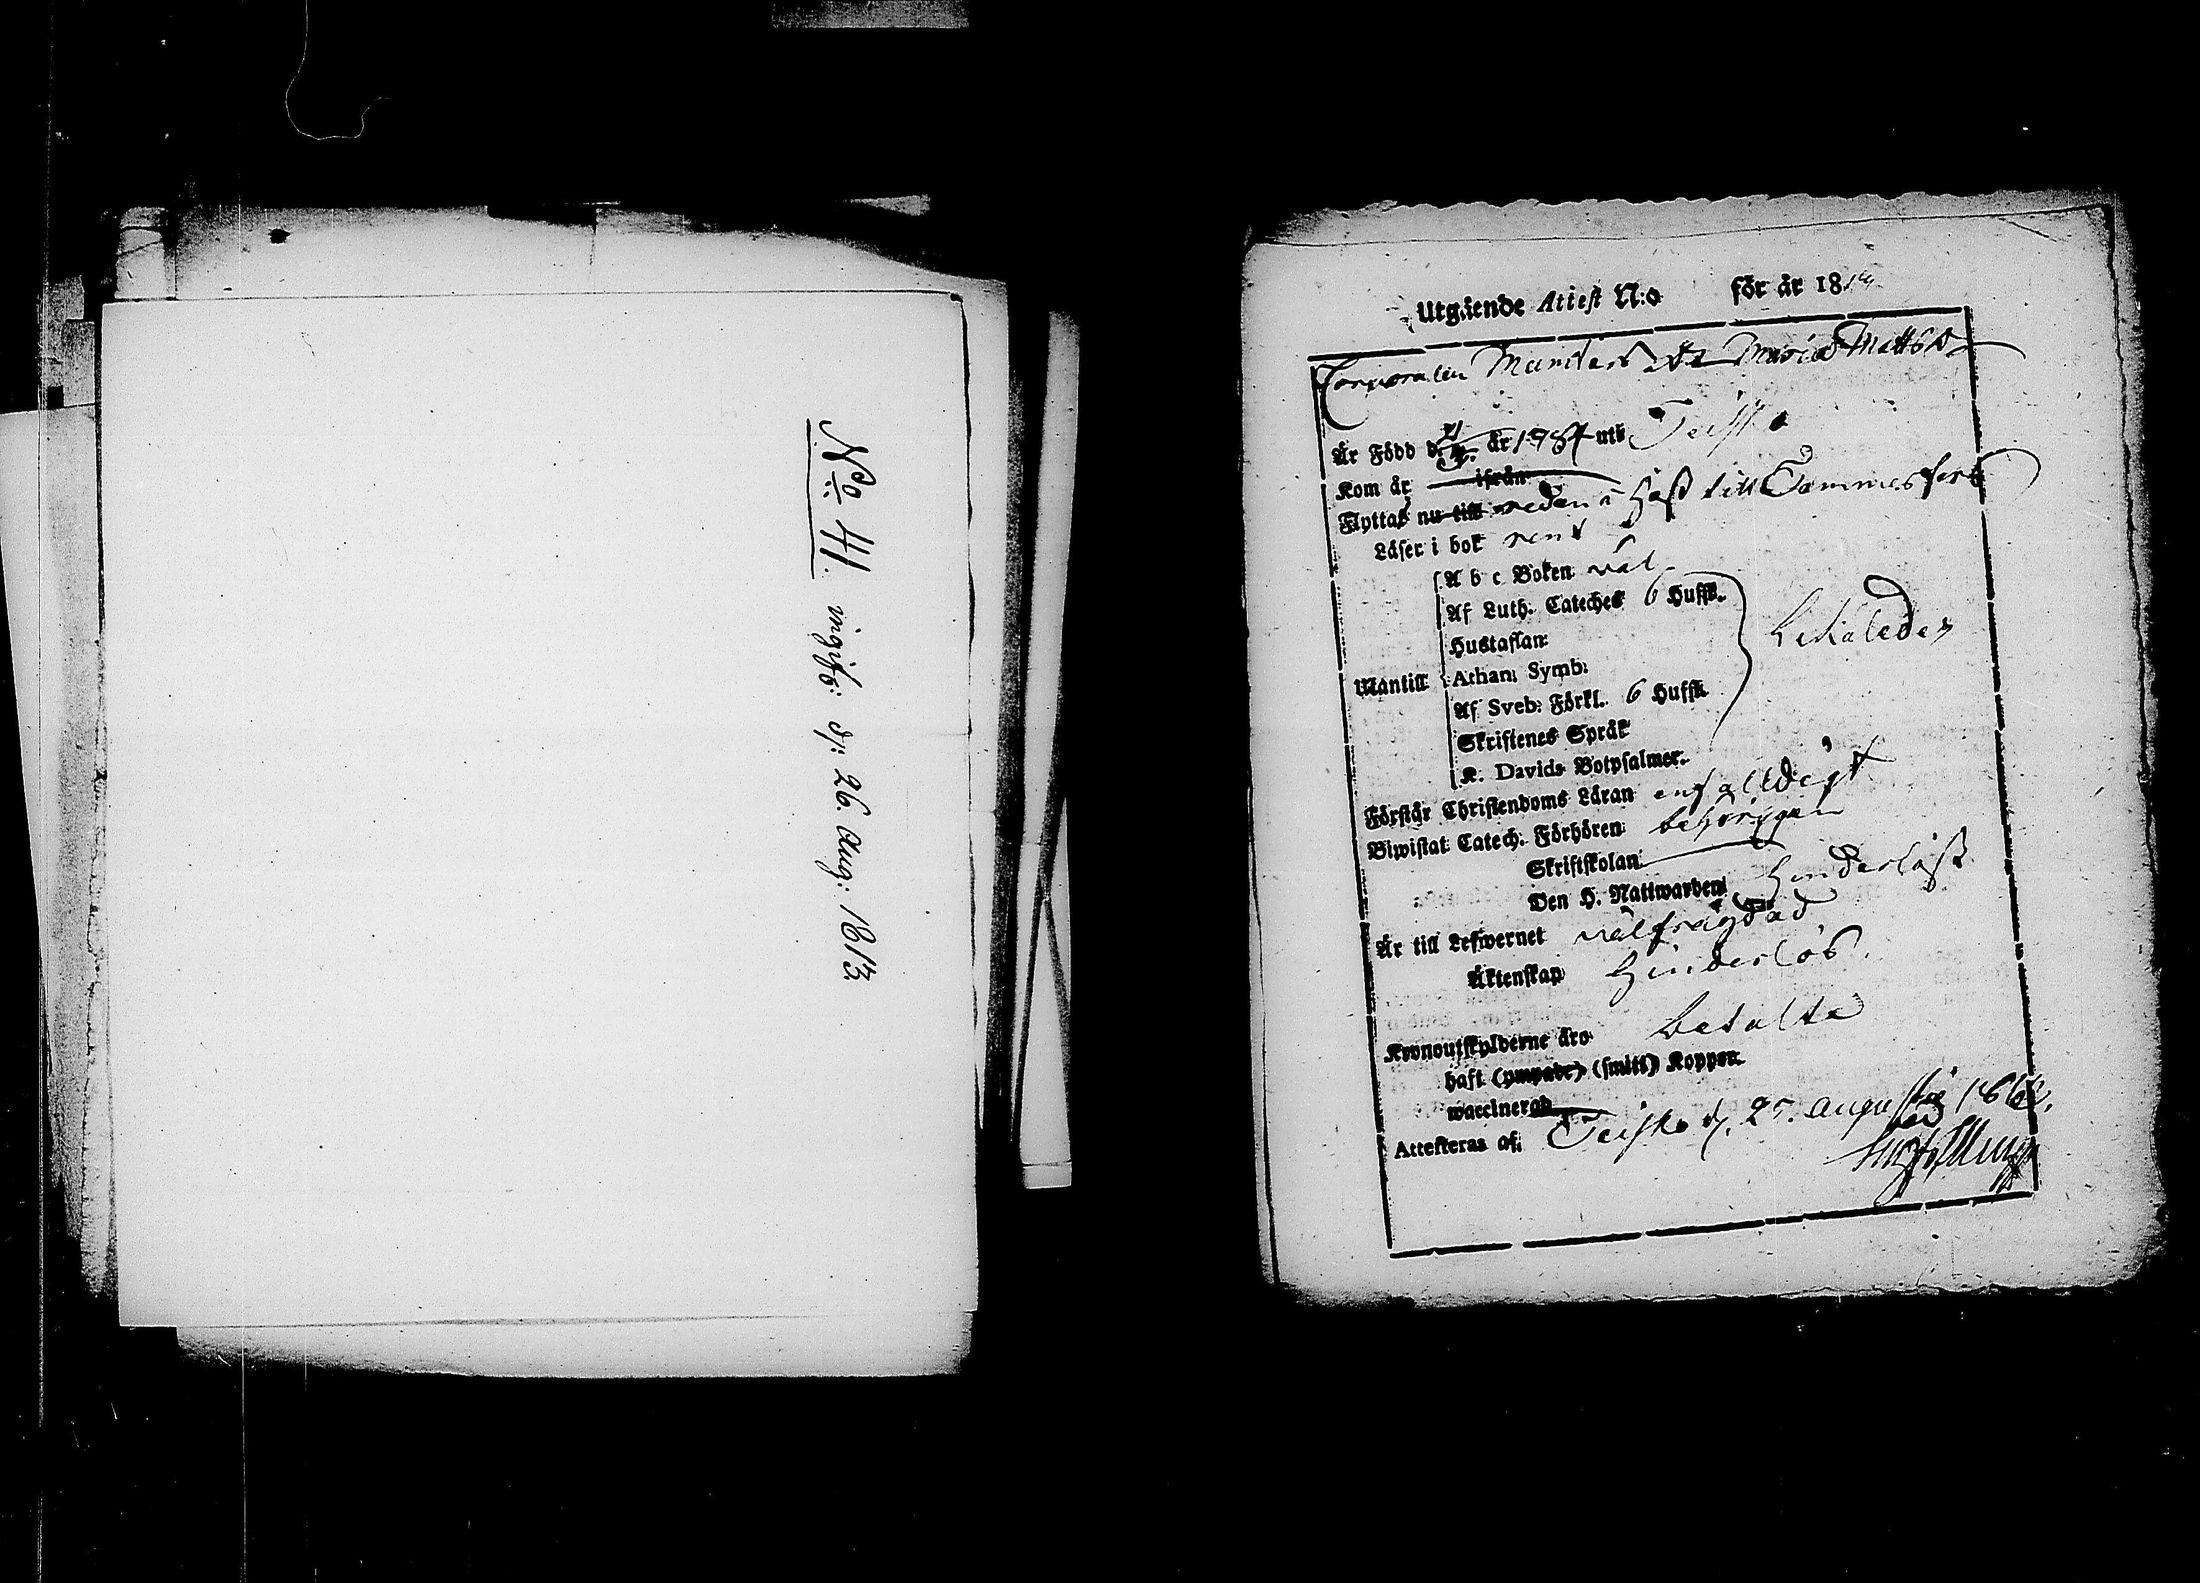 N:o 41. ingifv: d: 26. Aug: 1813
Utgående Attest N:o för år 18
Corporalen Munsters Maria Mattsd
Är Född d. år 1784 uti Teisko
Kom år ifrån
Flyttas nu till redan i Höst till Tammerfors
Läser i bok rent
A b c Boken väl
Af Luth. Cateches 6 Hufst.
Hustaflan
Mantill Athan: Symb:
Af Sveb: Förkl. 6 Hufst.
Skriftenes Språk
K. Davids Botpsalmer.
Förstår Christendoms Läran enfalldigt
Biwistat Catech. Förhören behörigen
Skriftskolan
Den H. Nattwarden hinderlöst
Är till Lefwernet välfrägdad
Äktenskap hinderlös.
Kronoutskylderne äro betalte
haft (ympade) (smitt) Koppor.
waccinerad
Attesteras af: Teisko d. 25. Augusti